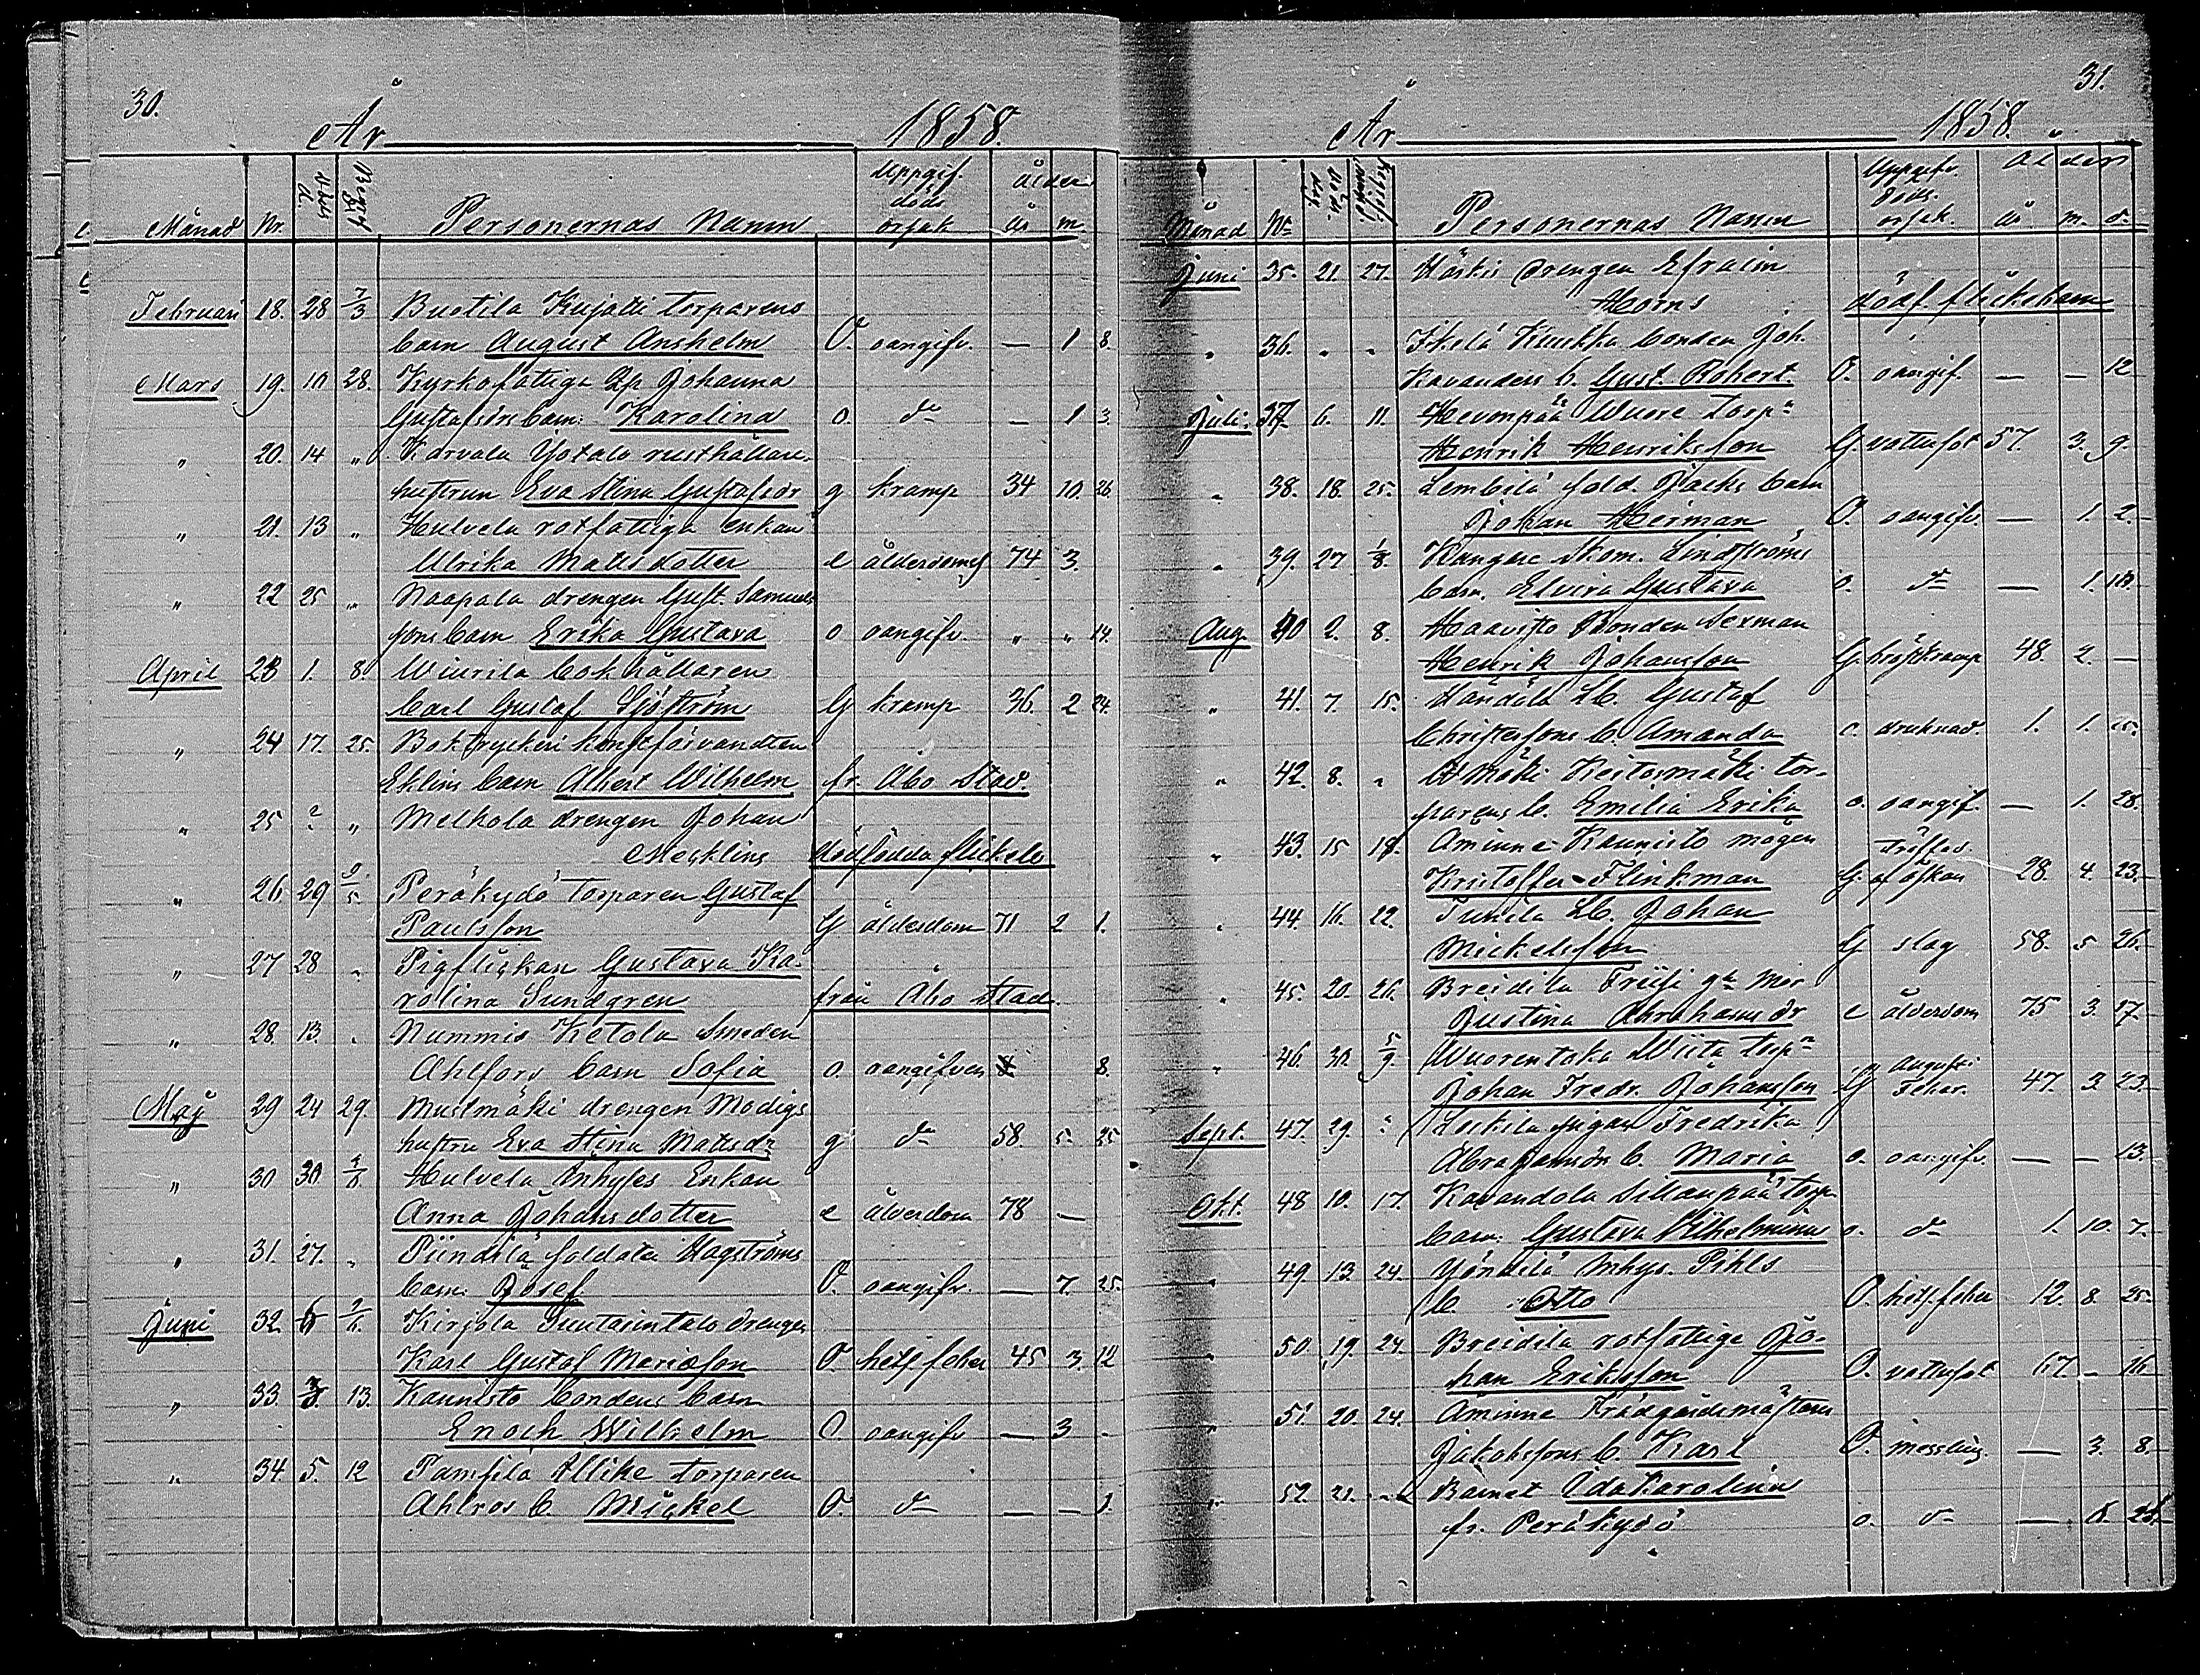 30.
År 1858.
Månad Nr. Personernas Namn Uppgif. döds orsak ålder år m.
Februari 18. 28 7/3 Buotila Kujatti torparens
barn August Anshelm O. oangifv. — 1 8.
Mars 19. 10 28. Kyrkofattiga Johanna
Gustafsdrs barn: Karolina o. do — 1 3
" 20. 14 " Karvala Yotala rusthållare
hustrun Eva Stina Gustafsdr g kramp 34 10. 26.
" 21. 13 " Hulvela rotfattiga enkan
Ulrika Matsdotter e ålderdoms 74 3.
" 22 25 " Naapala drengen Gust. Samuels
sons barn Erika Gustava o oangifv. " " 14.
April 23 1. 8 Wiurila bokhållaren
Carl Gustaf Sjöström G kramp 36. 2 24.
" 24 17. 25. Boktryckeri konstförvandten
Eklins barn Albert Wilhelm fr. Åbo Stad.
" 25 ? " Melkola drengen Johan
Mecklins dödfödda flickeb
" 26. 29 2/5 Peräkydö torparen Gustaf
Paulsson G ålderdom 71 2 1.
" 27 28 " Pigflickan Gustava Ka-
rolina Sundgren från Åbo Stad.
" 28. 13. . Nummis Ketola Smeden
Ahlfors barn Sofia o. oangifven 8.
Maj 29 24 29. Mustmäki drengen Modigs
hustru Eva Stina Matsdr g do 58. 5. 25
" 30 30 Hulvela Inhyses Enkan
Anna Johansdotter e ålderdom 78 —
" 31. 27. " Piindilä soldaten Hagströms
barn: Josef O. oangifv. — 7. 25.
Juni 32. Kirjola drengen
Karl Gustaf Mariæson O. hets. feber 45 3. 12
" 33. 13. Kaunisto bondens barn
Enoch Wilhelm O. oangifv — 3 -
" 34. 5. 12 Pamfila Ylike torparen
Ahlros b. Mickel O. do — — 1.
31.
År 1858.
Månad No Personernas Namn Uppgifv. döds. orsak. ålder år. m. d.
Juni 35. 21. 27. Härkis drengen Efraim
Horns dödf. flickebarn
" 36. " " Ikelä Kuukka bonden Joh.
Kavanders b. Gust. Robert. O. oangif. — — 12
Juli 37. 6. 11. Hevonpää Wuore torpn
Henrik Henriksson G. vattusot 57. 3. 9.
" 38. 18. 25. Lembilä sold. Jacks barn
Johan Herman O. oangifv. — 1. 2.
" 39. 27 1/8. Kangare Skom. Lindströms
barn. Elvira Gustava o. do — 1.
Aug. 40 2. 8. Haavisto Bonden Sexman
Henrik Johansson G. bröstkramp 48. 2. —
" 41. 7. 15. Handola Lb. Gustaf
Christerssons b. Amanda o. druknad. 1. 1.
" 42. 8. " Keitosmäki tor-
parens b. Emilia Erika o. oangif. — 1. 28.
" 43. 15 Åminne Kaunisto mågen
Kristoffer Flinkman G. träffad af åskan 28. 4. 23.
" 44. 16. 22. Tuurila Lb. Johan
Mickelsson G slag 58. 5 26.
" 45. 20. 26. Breidila Friisi gla mor
Justina Abrahamsdr e ålderdom 75 3. 17
" 46. 30. 5/9. Wuorentaka Wiita torpn
Johan Fredr. Johansson G augusti feber. 47. 3. 23.
Sept. 47. 29. " Leikila pigan Fredrika
Abrahamsdrs b. Maria o. oangifv. — — 13.
Okt. 48 10. 17. Kavandola Sillanpää torp.
barn: Gustava Wilhelmina o. do 1. 10. 7.
" 49. 13. 24. Yöndilä Inhys. Pihls
b. Otto O. hets. feber 12. 8. 25.
" 50. 19. 24. Breidila rotfattige Jo-
han Eriksson O. vattusot 67. - 16.
" 51. 20. 24. Åminne Trädgårdsmästaren
Jakobssons b. Karl O. messling — 3. 8.
" 52. 21. Barnet Ida Karolina
fr. Peräkydö o. do —